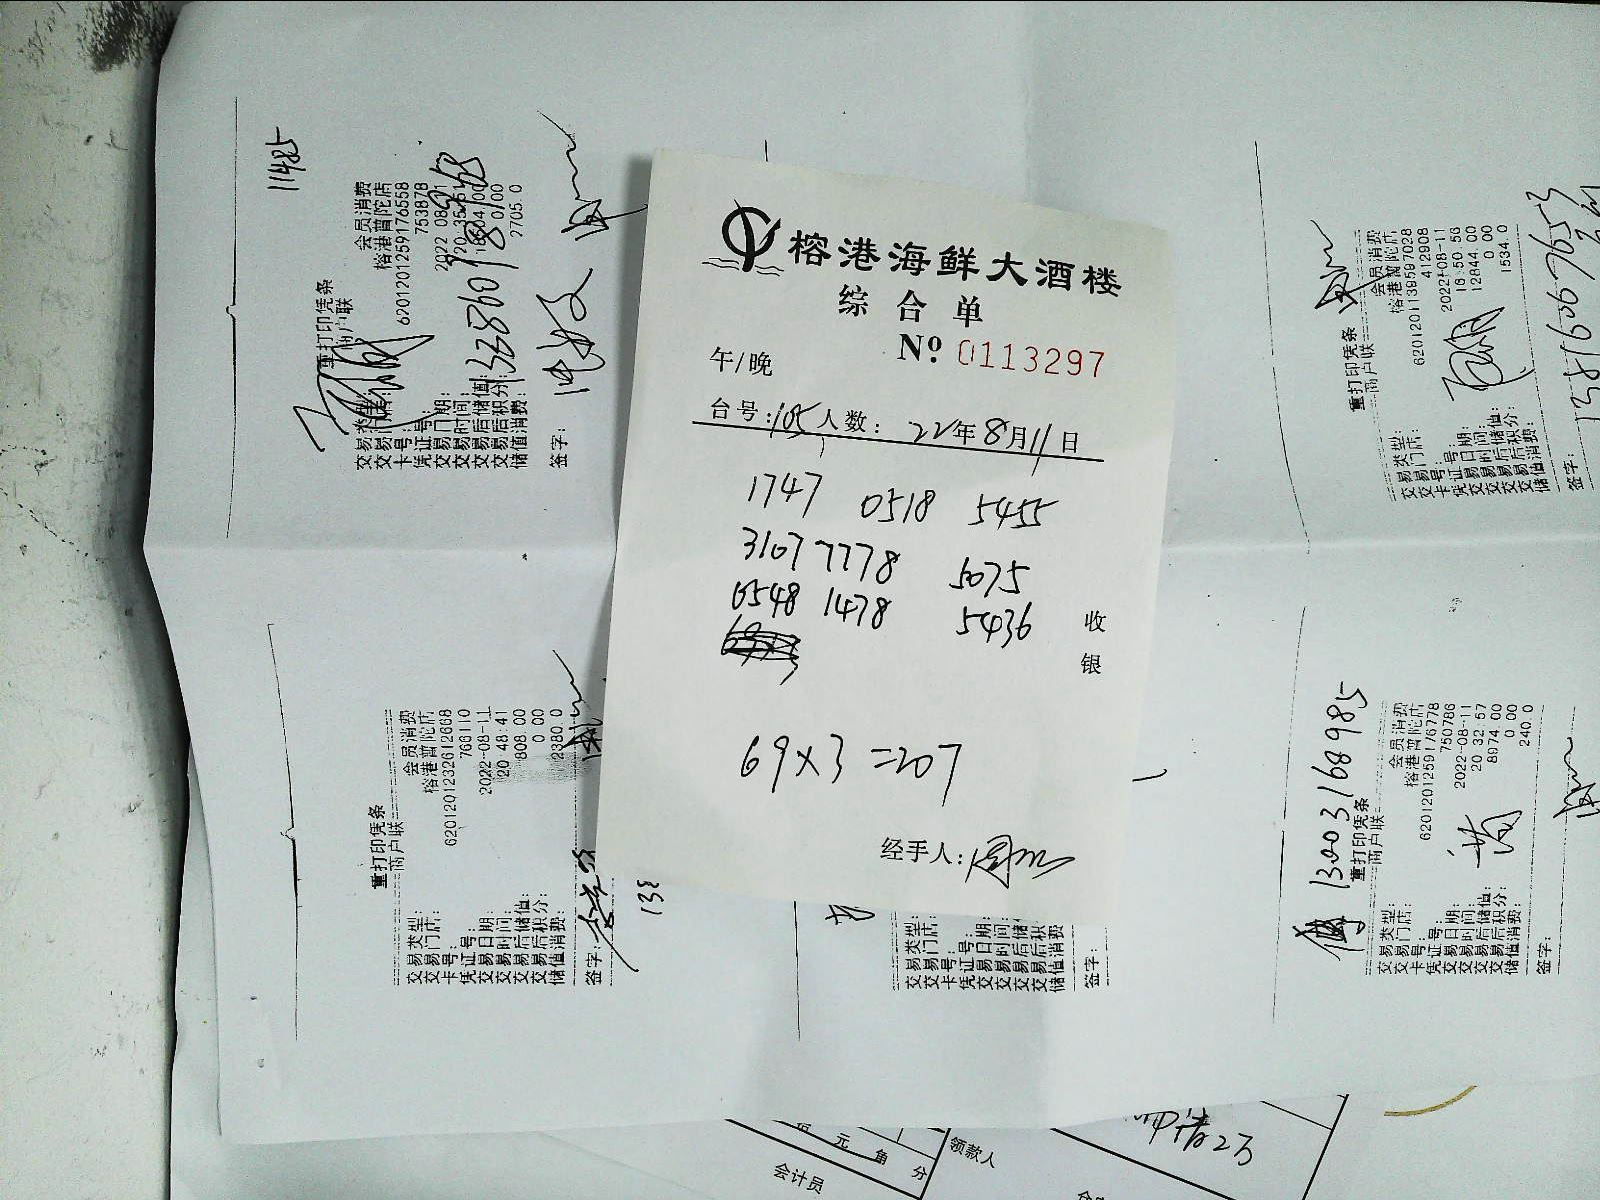 榕港海鲜大酒楼
综合单
午/晚
№ 0113297
台号:105 人数: 22年8月11日
1747 0518 5455
3107 7778 5075
0548 1478 5436
收
银
69×3=207
经手人:
11485
重打印凭条
商户联
交易类型: 会员消费
交易门店: 榕港普陀店
卡号: 6201201259176558
凭证号: 753878
交易日期:
交易时间:
交易后储值:
交易后积分: 0.00
储值消费: 2705.0
签字:
重打印凭条
商户联
交易类型: 会员消费
交易门店: 榕港普陀店
卡号: 6201201139597028
凭证号: 412908
交易日期: 2022-08-11
交易时间: 18 50 56
交易后储值: 12844 00
交易后积分: 0 00
储值消费: 1534 0
签字:
重打印凭条
商户联
交易类型: 会员消费
交易门店: 榕港普陀店
卡号: 6201201232612668
凭证号: 766110
交易日期: 2022-08-11
交易时间: 20 48 41
交易后储值: 808 00
交易后积分: 0 00
储值消费: 2380.0
签字:
交易类型:
交易门店:
卡号:
凭证号:
交易日期:
交易时间:
交易后储
交易后积
储值消费:
签字:
13003168985
重打印凭条
商户联
交易类型: 会员消费
交易门店: 榕港普陀店
卡号: 6201201259176778
凭证号: 750786
交易日期: 2022-08-11
交易时间: 20 32 57
交易后储值: 8974 00
交易后积分: 0 00
储值消费: 240 0
签字:
元 角 分
领款人
会计员